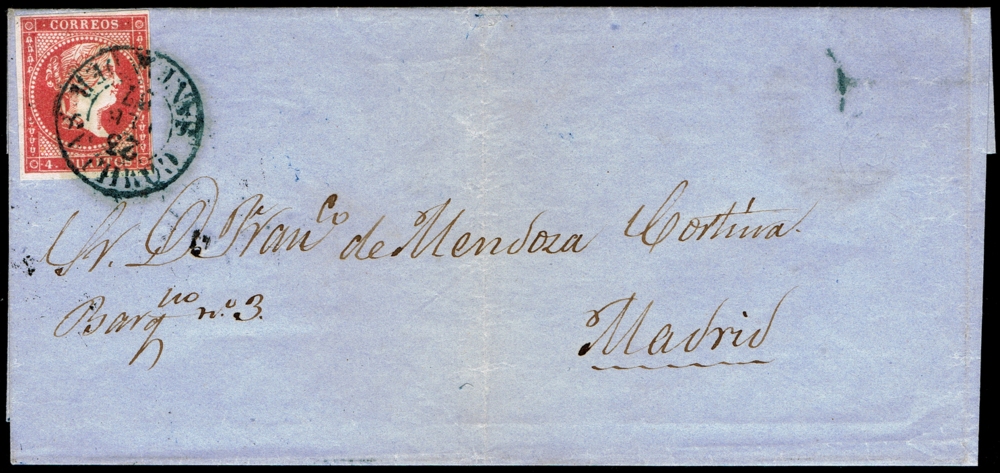 CORREOS
4. CUARTOS
Sr. D. Franco de Mendoza Cortina.
Barqllo nº 3.
Madrid